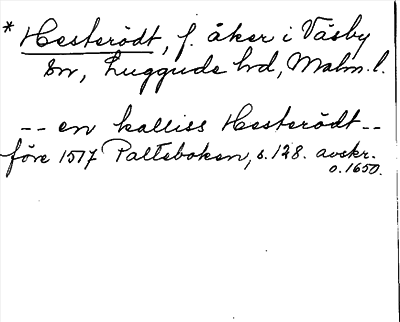 * Hesterödt, f. åker i Väsby
sn, Luggude hd, Malm. l.
-- en kalliss Hesterödt --
före 1517 Palteboken, s. 128. avskr.
o. 1650.